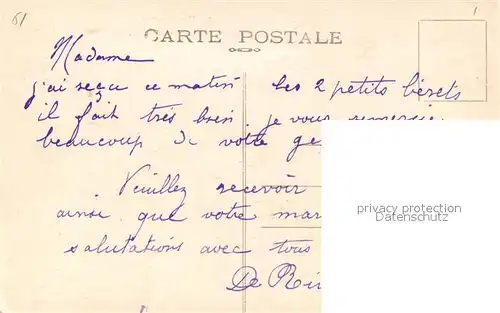 61
1
CARTE POSTALE
Madame
j'ai reçu ce matin les 2 petits bérets
il fait très bien je vous remercie
beaucoup de votre ge
Veuillez recevoir
ainsi que votre mar
salutations avec tous
De Ri
privacy protection
Datenschutz